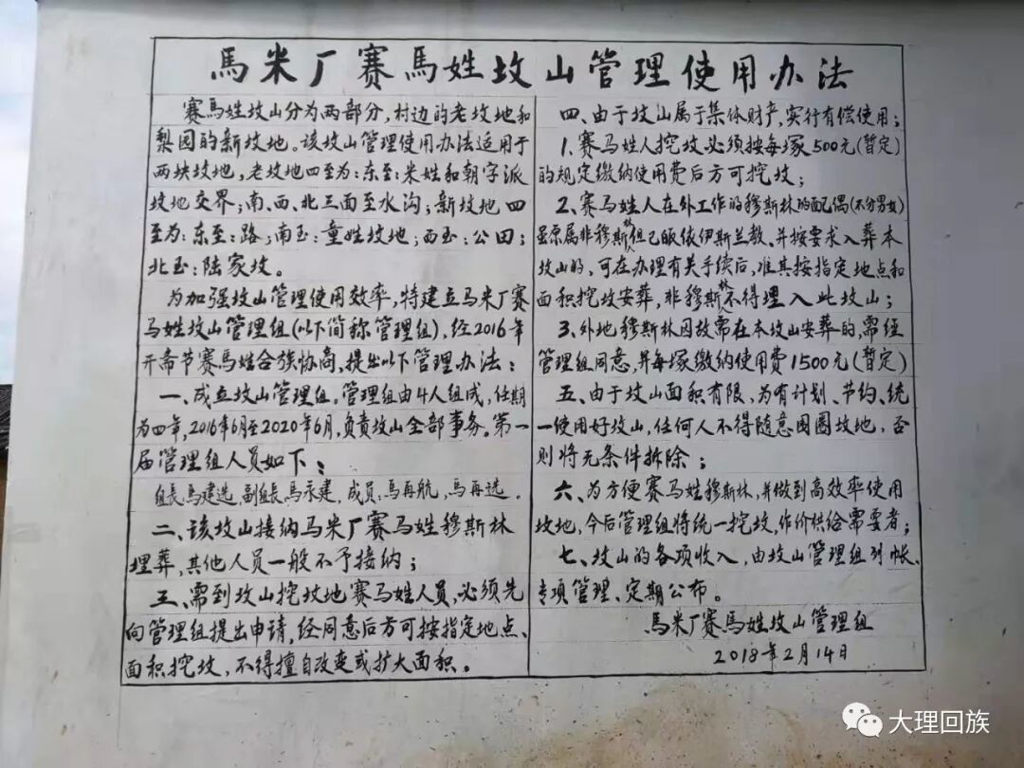 馬米厂赛馬姓坟山管理使用办法
赛馬姓坟山分为两部分，村边的老坟地和
梨园的新坟地。该坟山管理使用办法适用于
两块坟地，老坟地四至为：东至：米姓和朝字派
坟地交界；南、西、北三面至水沟；新坟地四
至为：东至：路；南至：童姓坟地；西至：公田；
北至：陆家坟。
为加强坟山管理使用效率，特建立马米厂赛
马姓坟山管理组（以下简称管理组），经2016年
开斋节赛馬姓合族协商，提出以下管理办法：
一、成立坟山管理组，管理组由4人组成，任期
为四年，2016年6月至2020年6月，负责坟山全部事务。第一
届管理组人员如下：
组长：馬建选，副组长馬永建，成员：馬再航，馬再选。
二、该坟山接纳马米厂赛马姓穆斯林
埋葬，其他人员一般不予接纳；
三、需到坟山挖坟地赛马姓人员，必须先
向管理组提出申请，经同意后方可按指定地点、
面积挖坟，不得擅自改变或扩大面积。
四、由于坟山属于集体财产，实行有偿使用；
1.赛马姓人挖坟必须按每塚500元(暂定)
的规定缴纳使用费后方可挖坟；
2.赛马姓人在外工作的穆斯林的配偶(不分男女)
虽原属非穆斯林但已皈依伊斯兰教、并按要求入葬本
坟山的，可在办理有关手续后，准其按指定地点和
面积挖坟安葬，非穆斯林不得埋入此坟山；
3.外地穆斯林因故需在本坟山安葬的，需经
管理组同意，并每塚缴纳使用费1500元(暂定)
五、由于坟山面积有限，为有计划、节约、统
一使用好坟山，任何人不得随意围圈坟地，否
则将无条件拆除；
六、为方便赛马姓穆斯林，并做到高效率使用
坟地，今后管理组将统一挖坟，作价供给需要者；
七、坟山的各项收入，由坟山管理组列帐、
专项管理、定期公布。
馬米厂赛馬姓坟山管理组
2018年2月14日
大理回族